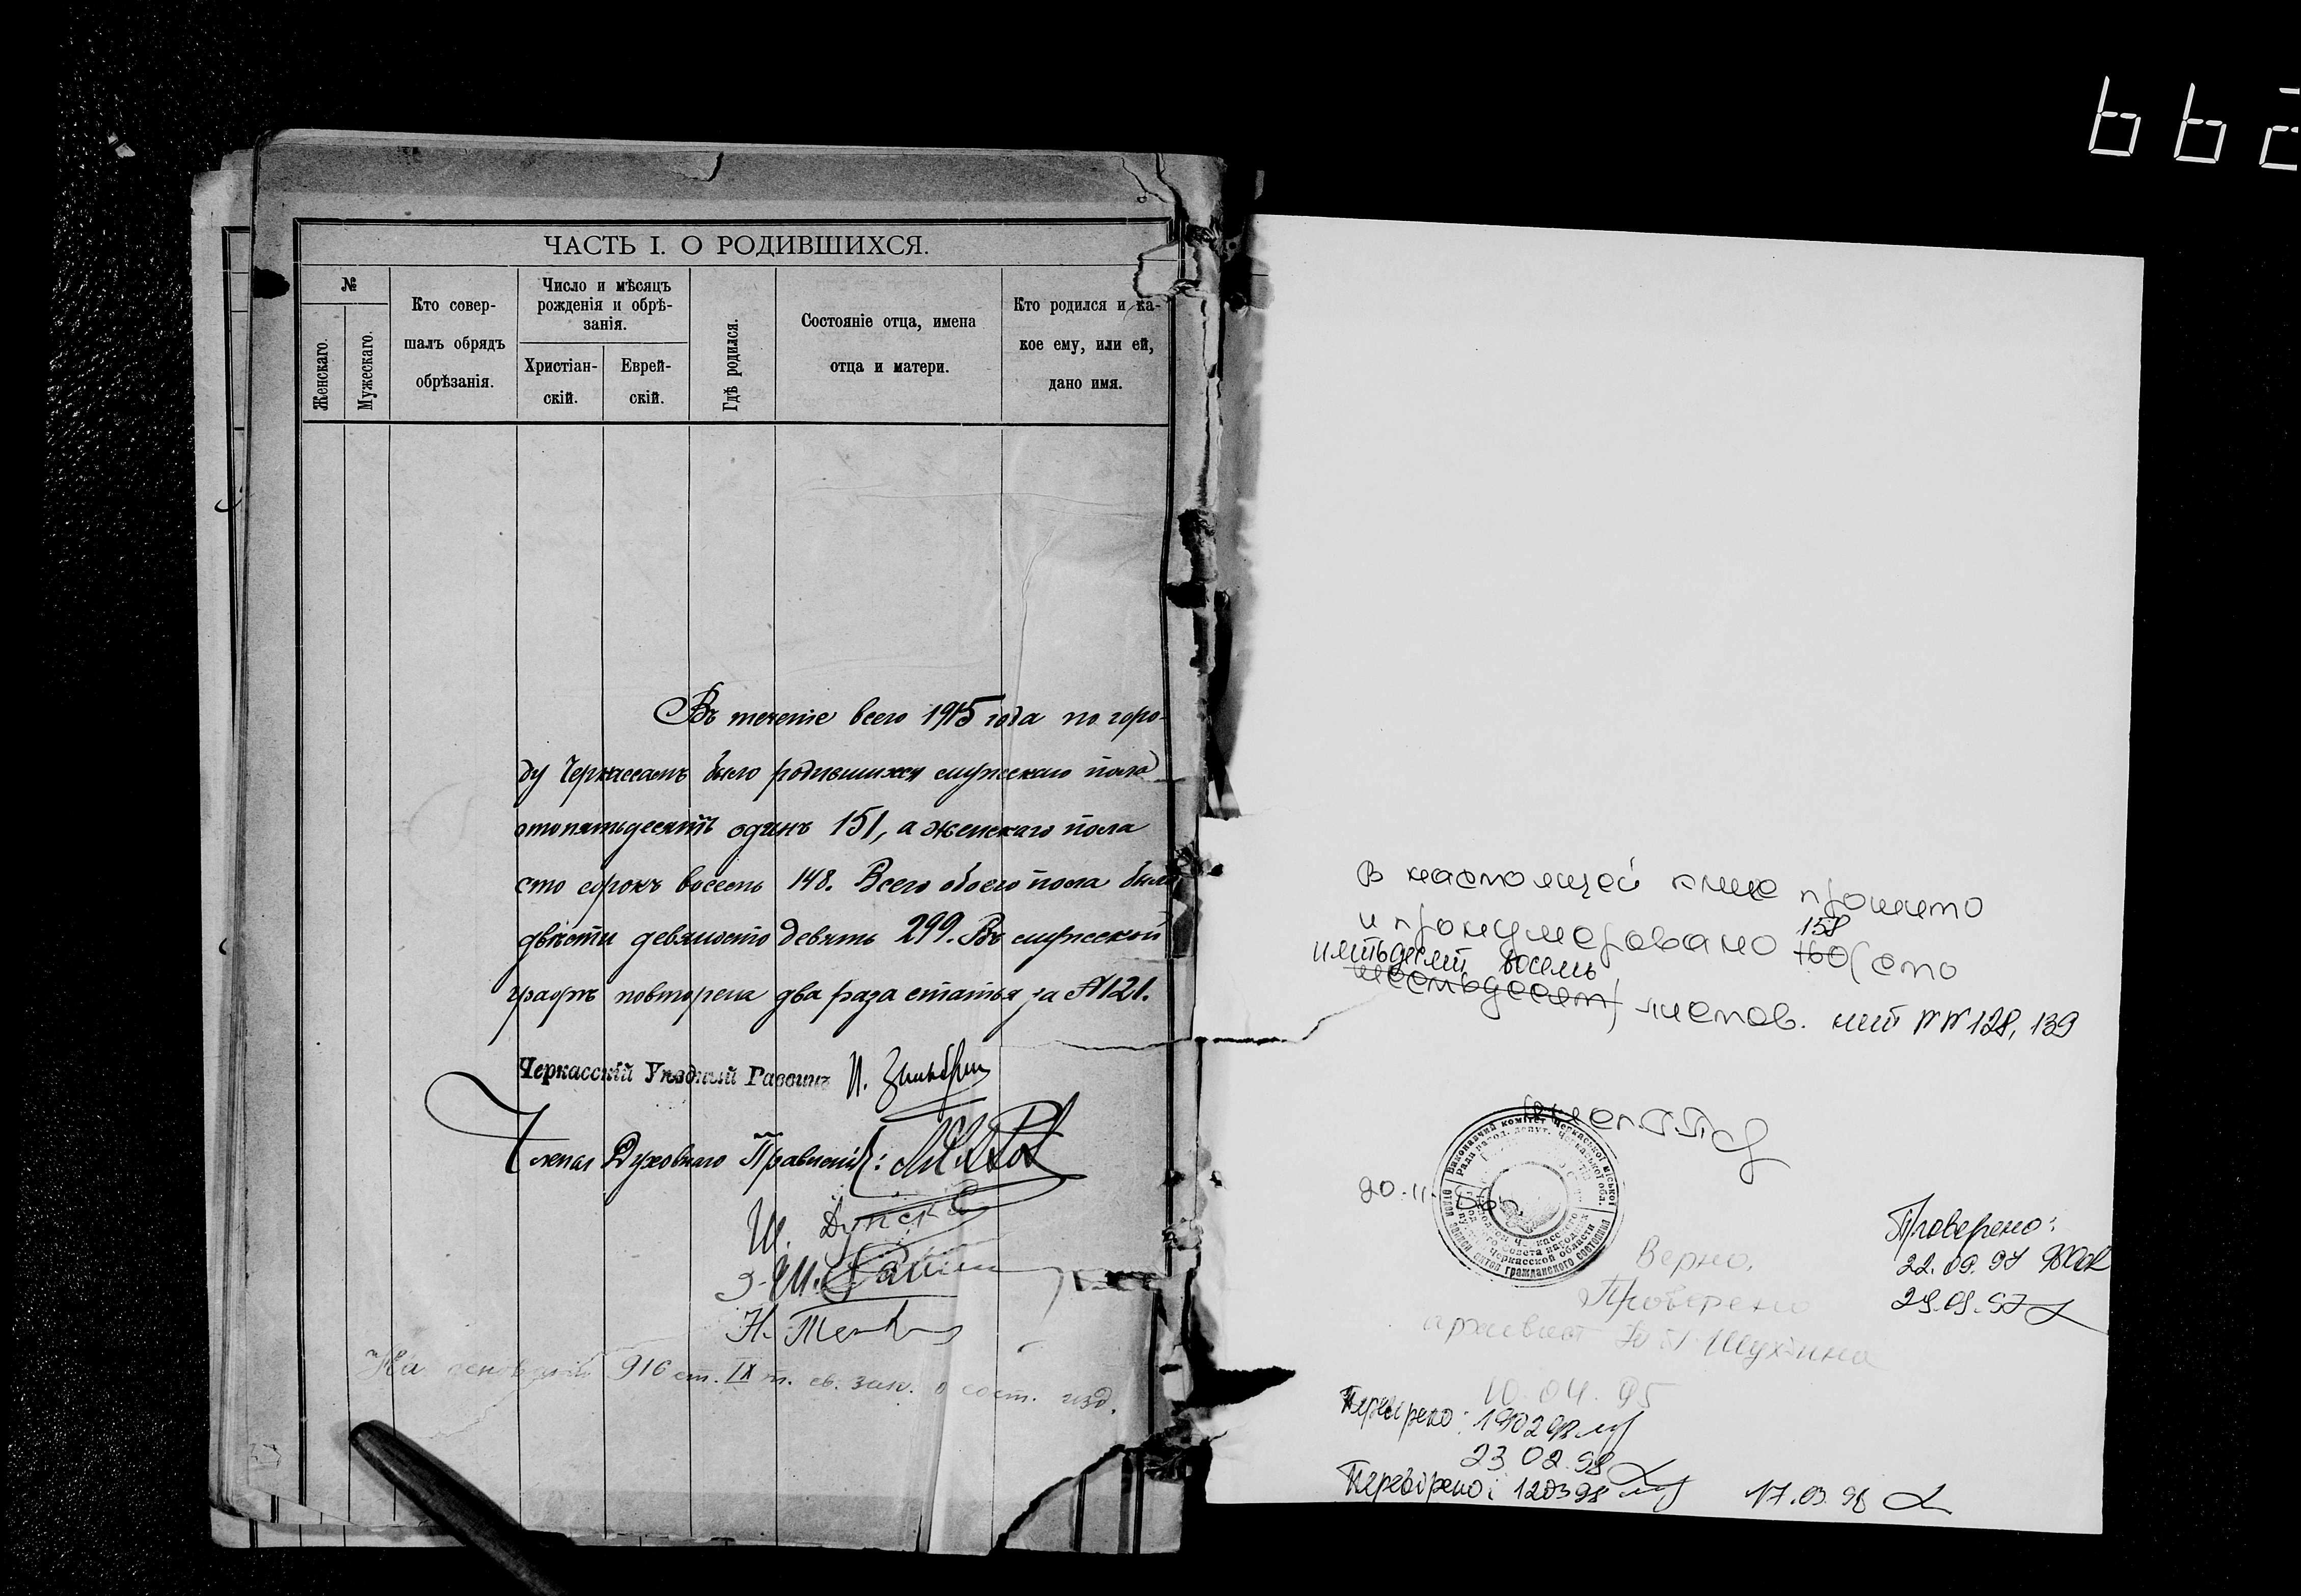 ЧАСТЬ I. О РОДИВШИХСЯ.
№
Женскаго.
Мужескаго.
Кто совер-
шалъ обрядъ
обрѣзанія.
Число и мѣсяцъ
рожденія и обрѣ-
занія.
Христіан-
скій.
Еврей-
скій.
Гдѣ родился.
Состояніе отца, имена
отца и матери.
Кто родился и ка-
кое ему, или ей,
дано имя.
Въ теченіе всего 1915 года по горо-
ду Черкассамъ было родившихся мужескаго пола
сто пятьдесятъ одинъ 151, а женскаго пола
сто сорокъ восемь 148. Всего обоего пола было
двѣсти девяносто девять 299. Въ мужеской
графѣ повторена два раза статья за № 121.
Черкасскій Уѣздный Раввинъ
Члены Духовнаго Правленія:
Ш. Дунск
Н.
На основаніи 916 ст. IX т. св. зак. о сост. изд.
В настоящей книге прошито
и пронумеровано 158 160 (сто
пятьдесят восемь
шестьдесят) листов. нет №№ 128, 139
Виконавчий комітет Черкаської міської
Ради народ. депут. Черкаської обл.
записи актов гражданского состояния
20.11.
Верно.
Проверено
архивист
10.04.95
Проверено:
22.09.97
29.09.97
Перевірено: 190298
23 02 98
Перевірено: 120398
17.03.98
662